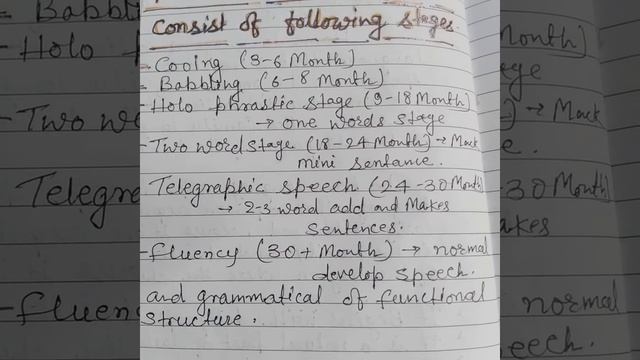 Consist of following stages
- Cooing (3-6 Month)
- Babbling (6-8 Month)
- Holo phrastic stage (9-18 Month)
→ one words stage
- Two word stage (18-24 Month) → Mack
mini sentance.
Telegraphic speech (24-30 Month)
→ 2-3 word add and Makes
sentences.
- fluency (30+ Month) → normal
develop speech.
and grammatical of functional
structure.